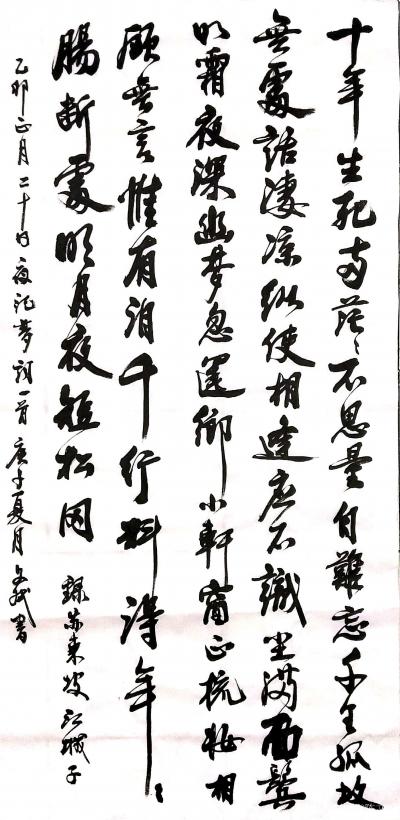 十年生死両茫〻不思量自難忘千里孤坟
無處話淒涼縱使相逢应不識尘满面鬓
如霜夜深幽夢忽還鄉小軒窗正梳妝相
顧無言惟有泪千行料得年〻
腸断處明月夜短松岡 錄苏東坡江城子
乙卯正月二十日夜记夢詞一首庚子夏月書